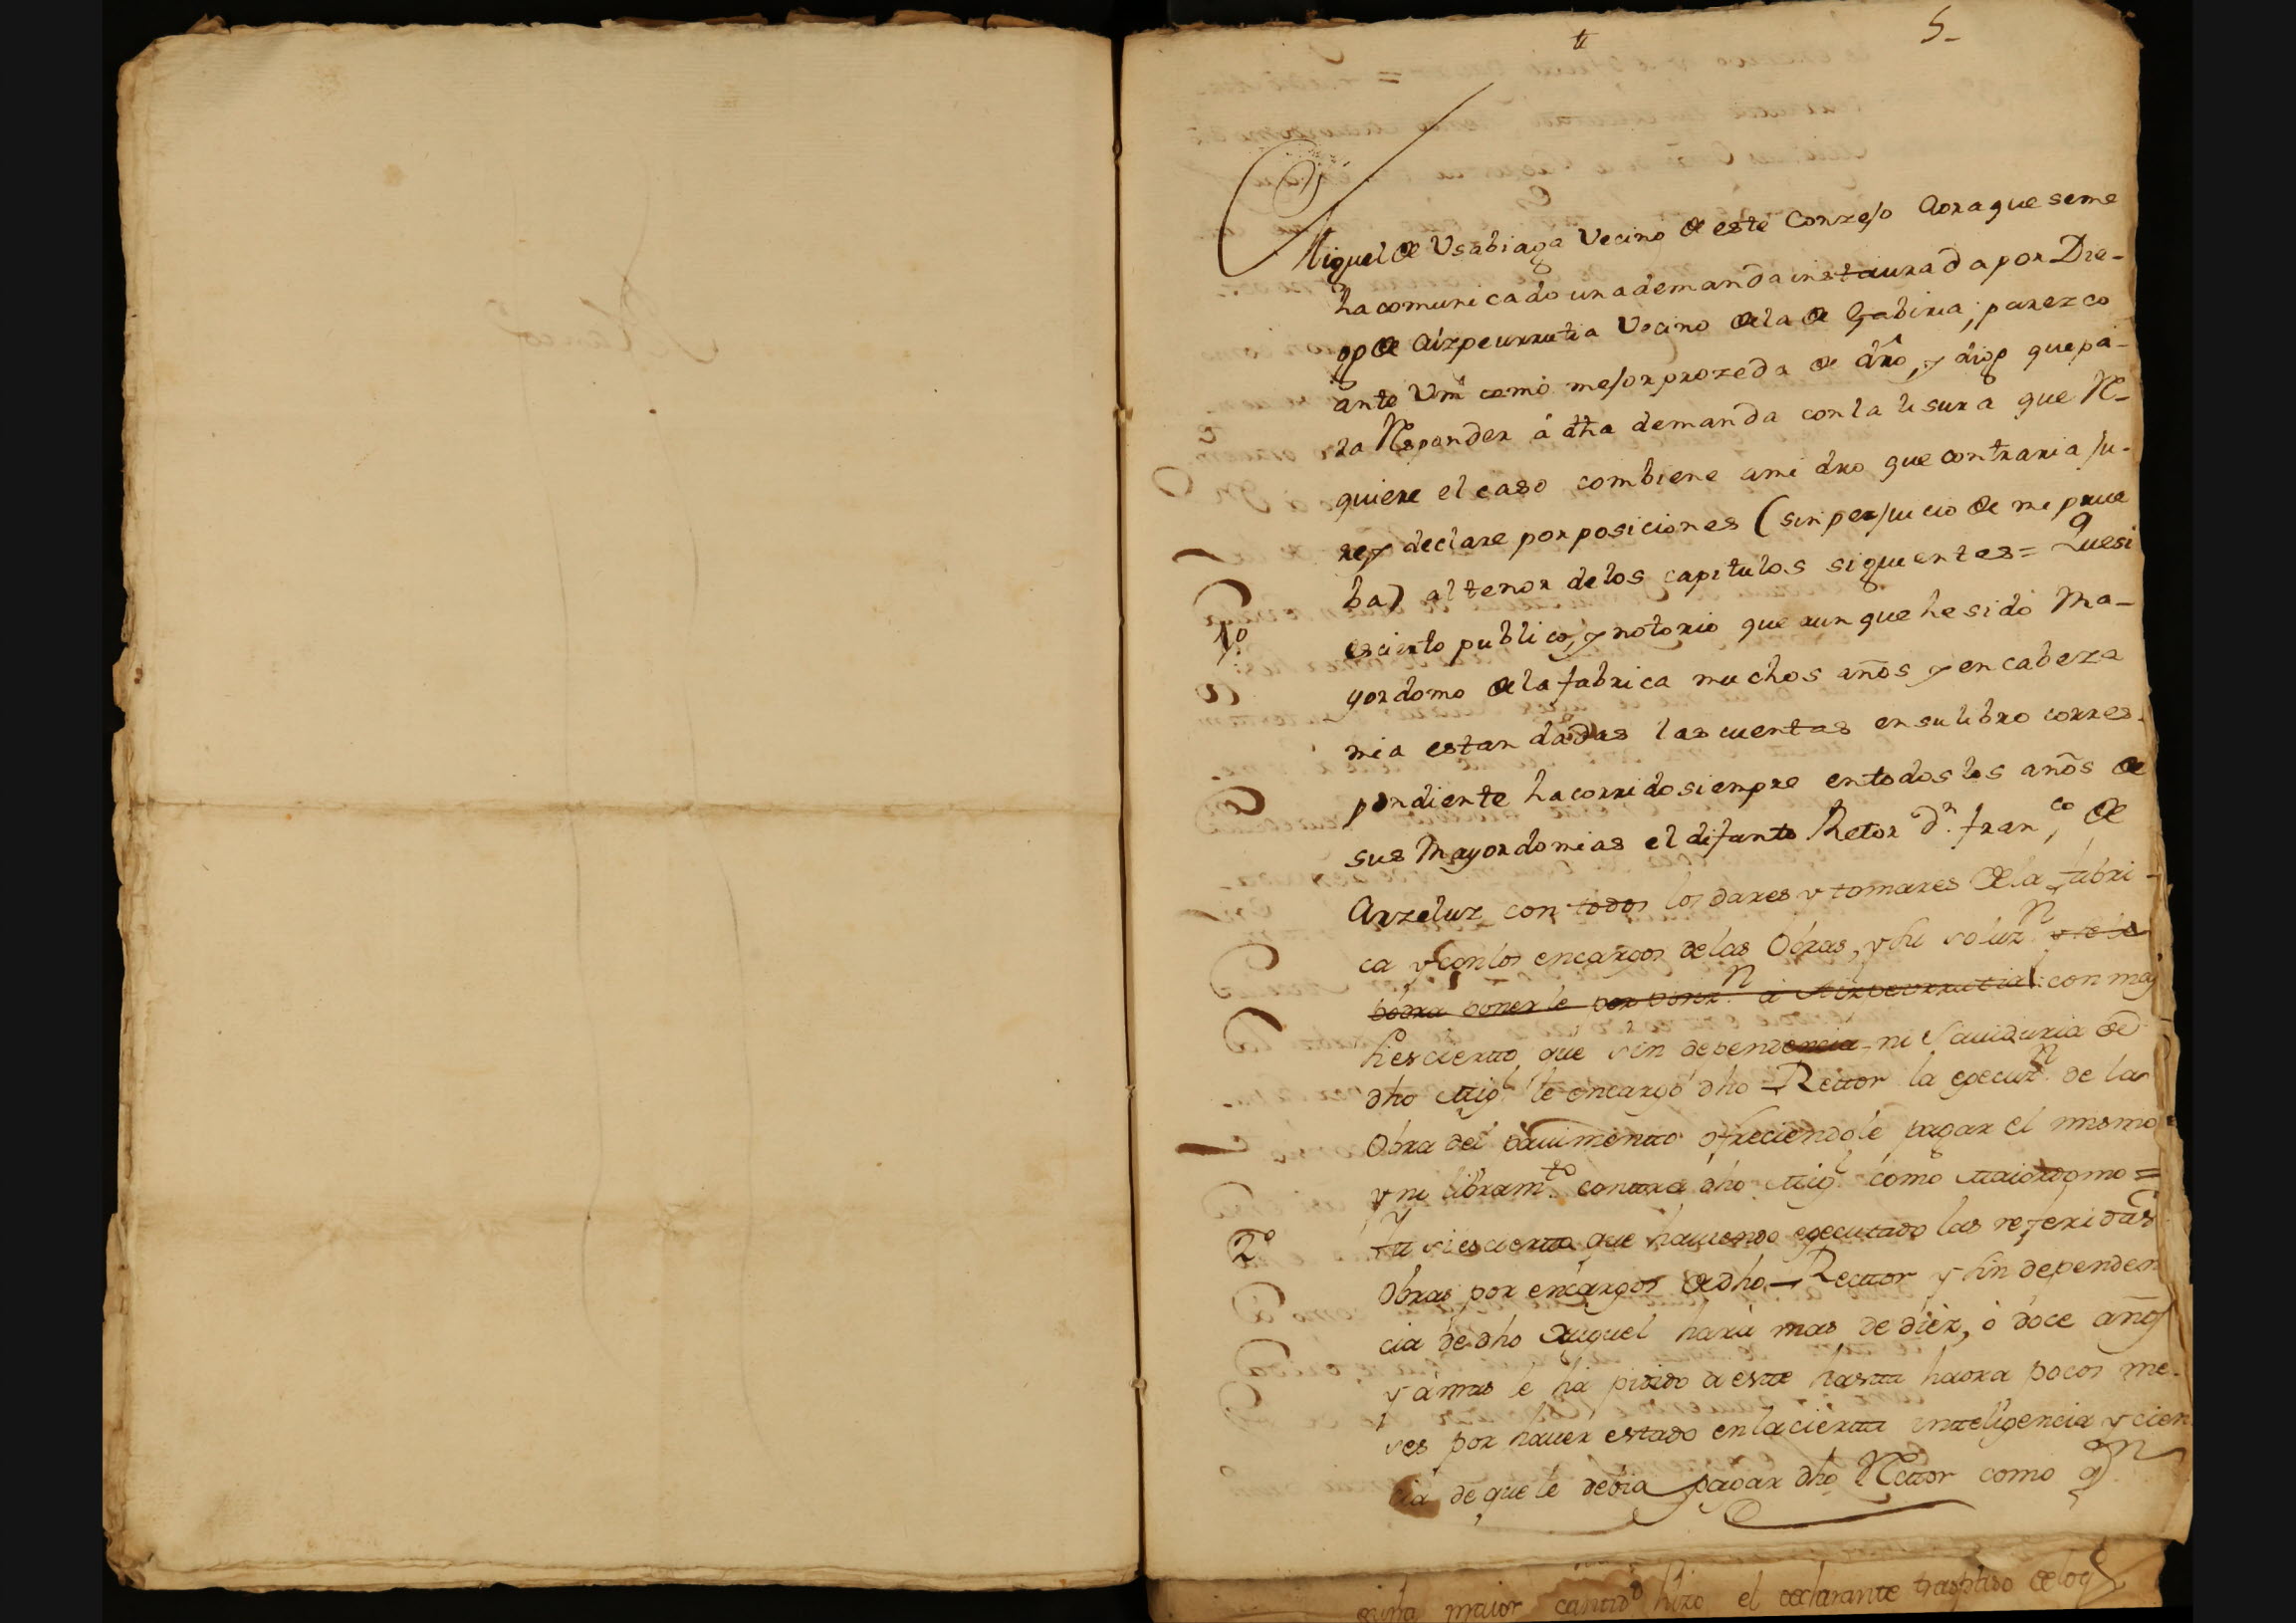 5-
Miguel de Vsabiaga Vecino de este Conzejo Aora que seme
ha comunicado una demanda instaurada por Die-
go de Aizpeurrutia Vecino de la de Gabiria; parezco
ante Vm como mejor prozeda de dro, y digo que pa-
ra Responder á dha demanda con la lisura que Re-
quiere el caso combiene ami dro que contraria ju-
re y declare por posiciones (sin perjuicio de mi prue
ba) al tenor de los capitulos siguientes = Que si
1º
es cierto publico, y notorio que aunque he sido Ma-
yordomo de la fabrica muchos años y en cabeza
mia estan dadas las cuentas en su libro corres-
pondiente ha corrido siempre en todos los años de
sus Mayordomias el difunto Retor Dn. Franco, de
Arzeluz con todos los dares y tomares de la fabri-
ca y con los encargos de las Obras, y su soluzn.
podra ponerle por a Aizpeurrutia con mas
si es cierto, que sin dependencia ni Saviduria de
dho Migl. le encargó dho Rector la egecuzn. de la
Obra del pavimento ofreciendole pagar el mismo
y ni libramto. contra dho Migl. como Maiordomo =
2º
Yt si es cierto que haviendo egecutado las referidas
Obras por encargos de dho Rector y sin dependen
cia de dho Miguel hará mas de diez, ó doce años
y á mas le há pidido a este hasta haora pocos me-
ses por haver estado en la cierta inteligencia y cien
cia de que le debia pagar dho Rector como qn
maior cantidd hizo el declarante traspaso de los